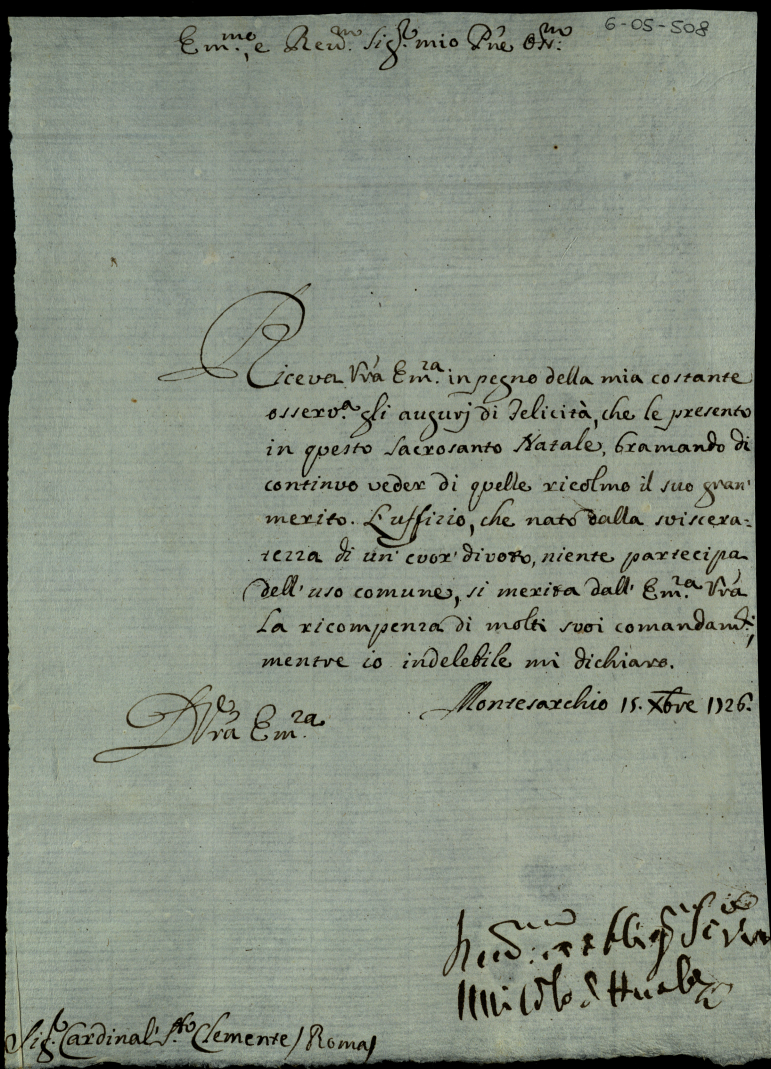 6-05-508
Em.mo, e Reud.mo Sig.r mio Pne
Riceva Vrã Em.ra in pegno della mia costante
osserv.a gli augurj di Felicità, che le presento
in questo Sacrosanto Natale, bramando di
continuo veder di quelle ricolmo il suo gran'
merito. L'uffizio, che nato dalla sviscera=
tezza di un' cuor' divoto, niente partecipa
dell' uso comune, si merita dall' Em.ra Vrã
La ricompenza di molti suoi comandam.ti,
mentre io indelebile mi dichiaro.
Montesarchio 15. Xbre 1726.
Di Vrã Em.ra
Sig.r Cardinal' S.to Clemente / Roma /